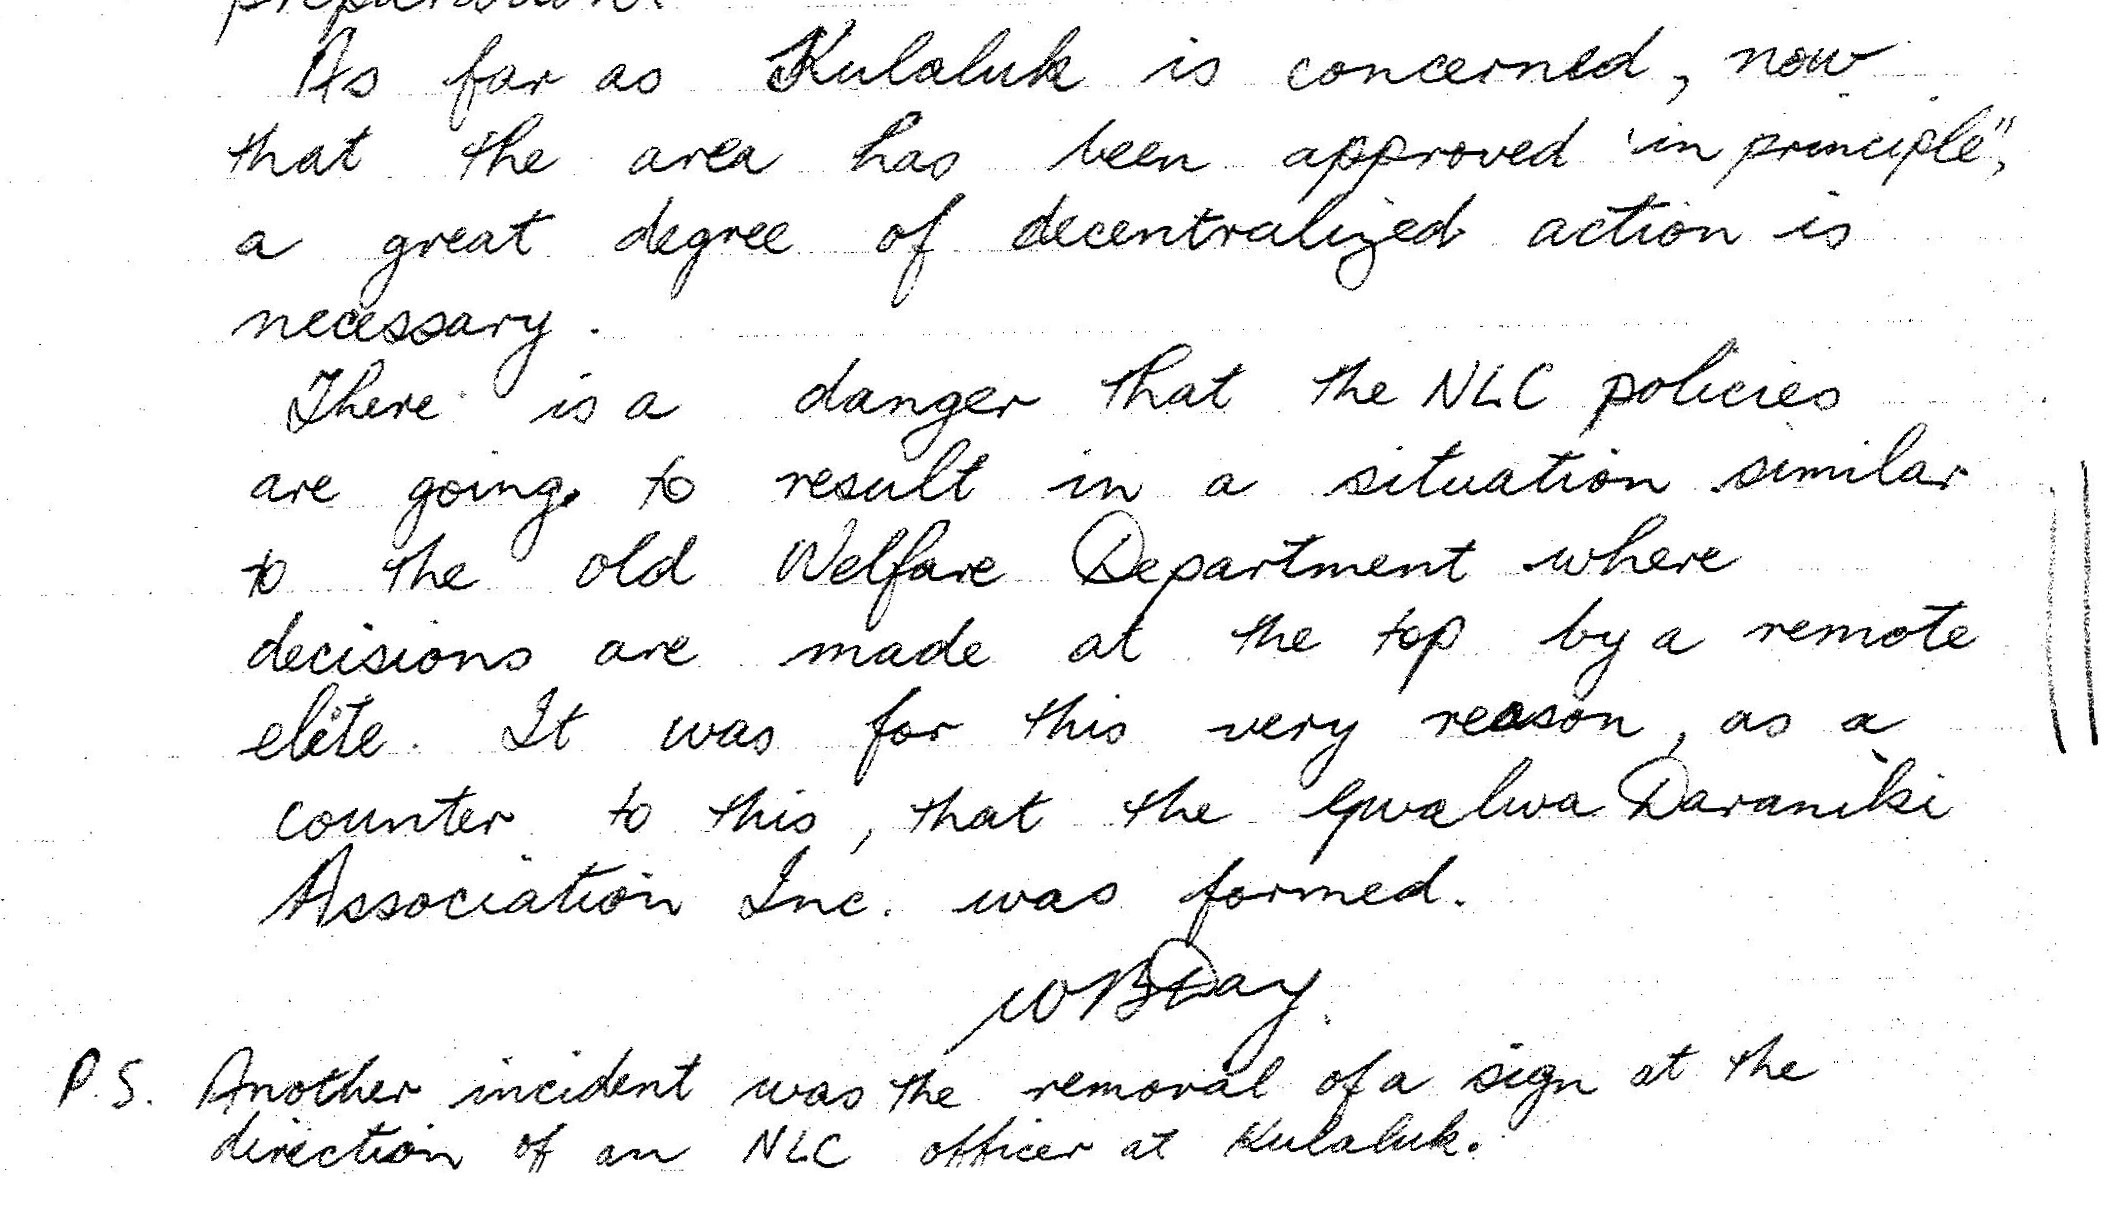 preparation.
As far as Kulaluk is concerned, now
that the area has been approved "in principle",
a great degree of decentralized action is
necessary.
There is a danger that the NLC policies
are going to result in a situation similar
to the old Welfare Department where
decisions are made at the top by a remote
elite. It was for this very reason, as a
counter to this, that the Gwalwa Daraniki
Association Inc. was formed.
W B Day.
P.S. Another incident was the removal of a sign at the
direction of an NLC officer at Kulaluk.